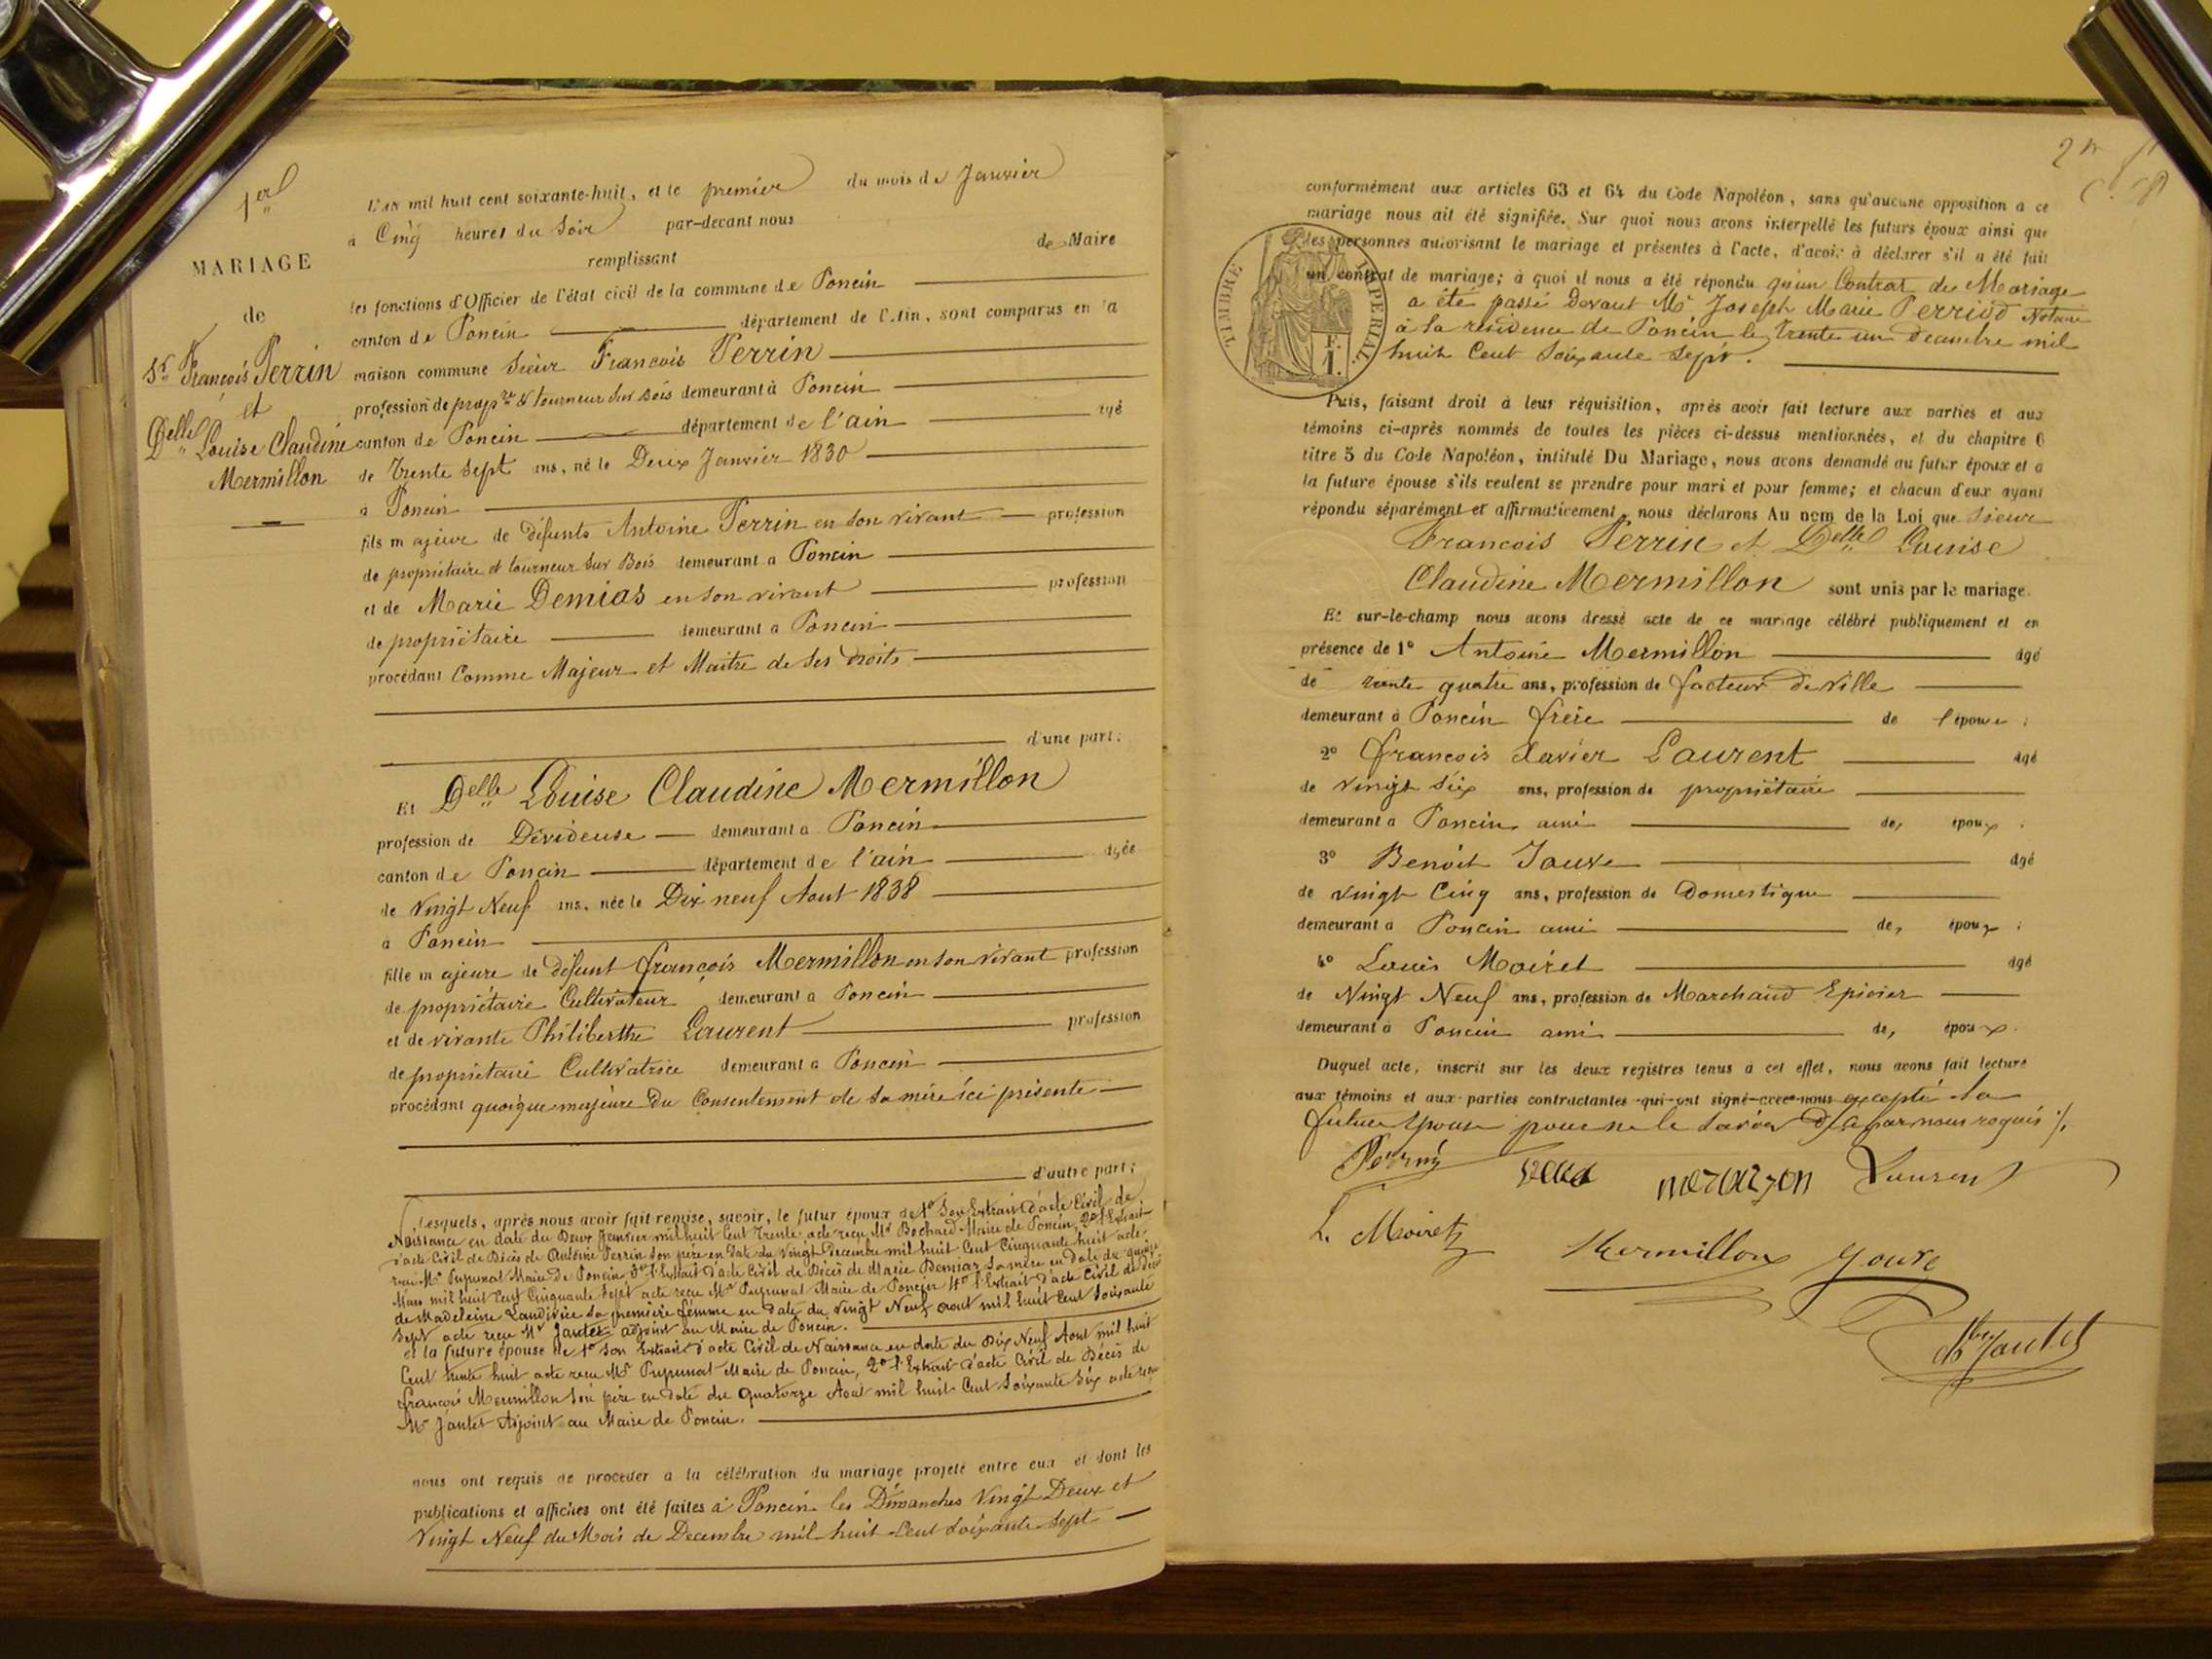 1er
MARIAGE
de
Sr François Perrin
et
Delle Louise Claudine
Mermillon
L'an mil huit cent soixante-huit, et le premier du mois de Janvier
à Cinq heures du Soir par-devant nous
remplissant de Maire
les fonctions d'Officier de l'état civil de la commune de Poncin
canton de Poncin département de l'Ain, sont comparus en la
maison commune Sieur François Perrin
profession de propre et tourneur sur Bois demeurant à Poncin
canton de Poncin département de l'ain âgé
de Trente Sept ans, né le Deux Janvier 1830
à Poncin
fils majeur de défunts Antoine Perrin en son vivant profession
de propriétaire et tourneur sur Bois demeurant à Poncin
et de Marie Demias en son vivant profession
de propriétaire demeurant à Poncin
procédant Comme Majeur et Maitre de ses droits
d'une part;
Et Delle Louise Claudine Mermillon
profession de Dévideuse demeurant à Poncin
canton de Poncin département de l'ain âgée
de Vingt Neuf ans, née le Dix neuf Aout 1838
à Poncin
fille majeure de défunt françois Mermillon en son vivant profession
de propriétaire Cultivateur demeurant à Poncin
et de vivante Philiberthe Laurent profession
de propriétaire Cultivatrice demeurant à Poncin
procédant quoique majeure du Consentement de sa mère ici présente
d'autre part;
Lesquels, après nous avoir fait remise, savoir, le futur époux de 1º Son Extrait d'acte Civil de
Naissance en date du Deux Janvier mil huit Cent Trente, acte reçu Mr Bochard Maire de Poncin, 2º l'Extrait
d'acte Civil de Décès de Antoine Perrin son père en date du Vingt Decembre mil huit Cent Cinquante huit acte
reçu Mr Pupunat Maire de Poncin 3º l'Extrait d'acte Civil de Décès de Marie Demias sa mère en date du quinze
Mars mil huit Cent Cinquante Sept acte reçu Mr Pupunat Maire de Poncin 4º l'Extrait d'acte Civil de Décès
de Madeleine sa première femme en date du Vingt Neuf Aout mil huit Cent Soixante
Sept acte reçu Mr Jantet adjoint au Maire de Poncin.
et la future épouse de 1º Son Extrait d'acte Civil de Naissance en date du Dix Neuf Aout mil huit
Cent trente huit acte reçu Mr Pupunat Maire de Poncin, 2º l'Extrait d'acte Civil de Décès de
françois Mermillon son père en date du Quatorze Aout mil huit Cent Soixante Six acte reçu
Mr Jantet Adjoint au Maire de Poncin.
nous ont requis de procéder à la célébration du mariage projeté entre eux et dont les
publications et affiches ont été faites à Poncin les Dimanches Vingt Deux et
Vingt Neuf du Mois de Decembre mil huit Cent Soixante Sept
conformément aux articles 63 et 64 du Code Napoléon, sans qu'aucune opposition à ce
mariage nous ait été signifiée. Sur quoi nous avons interpellé les futurs époux ainsi que
les personnes autorisant le mariage et présentes à l'acte, d'avoir à déclarer s'il a été fait
un contrat de mariage; à quoi il nous a été répondu qu'un Contrat de Mariage
a été passé devant Me Joseph Marie Perriod Notaire
à la résidence de Poncin le trente un Decembre mil
huit Cent Soixante Sept.
TIMBRE IMPERIAL
F.
1.
Puis, faisant droit à leur réquisition, après avoir fait lecture aux parties et aux
témoins ci-après nommés de toutes les pièces ci-dessus mentionnées, et du chapitre 6
titre 5 du Code Napoléon, intitulé Du Mariage, nous avons demandé au futur époux et à
la future épouse s'ils veulent se prendre pour mari et pour femme; et chacun d'eux ayant
répondu séparément et affirmativement, nous déclarons Au nom de la Loi que Sieur
François Perrin et Delle Louise
Claudine Mermillon sont unis par le mariage.
Et sur-le-champ nous avons dressé acte de ce mariage célébré publiquement et en
présence de 1º Antoine Mermillon âgé
de trente quatre ans, profession de facteur de ville
demeurant à Poncin frère de l'épouse;
2º François Xavier Laurent âgé
de vingt Six ans, profession de propriétaire
demeurant à Poncin ami des époux.
3º Benoit Jouve âgé
de vingt Cinq ans, profession de Domestique
demeurant à Poncin ami des époux;
4º Louis Moiret âgé
de Vingt Neuf ans, profession de Marchand Epicier
demeurant à Poncin ami des époux.
Duquel acte, inscrit sur les deux registres tenus à cet effet, nous avons fait lecture
aux témoins et aux parties contractantes qui ont signé avec nous excepté la
future épouse pour ne le savoir de ce par nous requis ./.
Perrin Laurent
L. Moiret Mermillon Jouve
Jantet